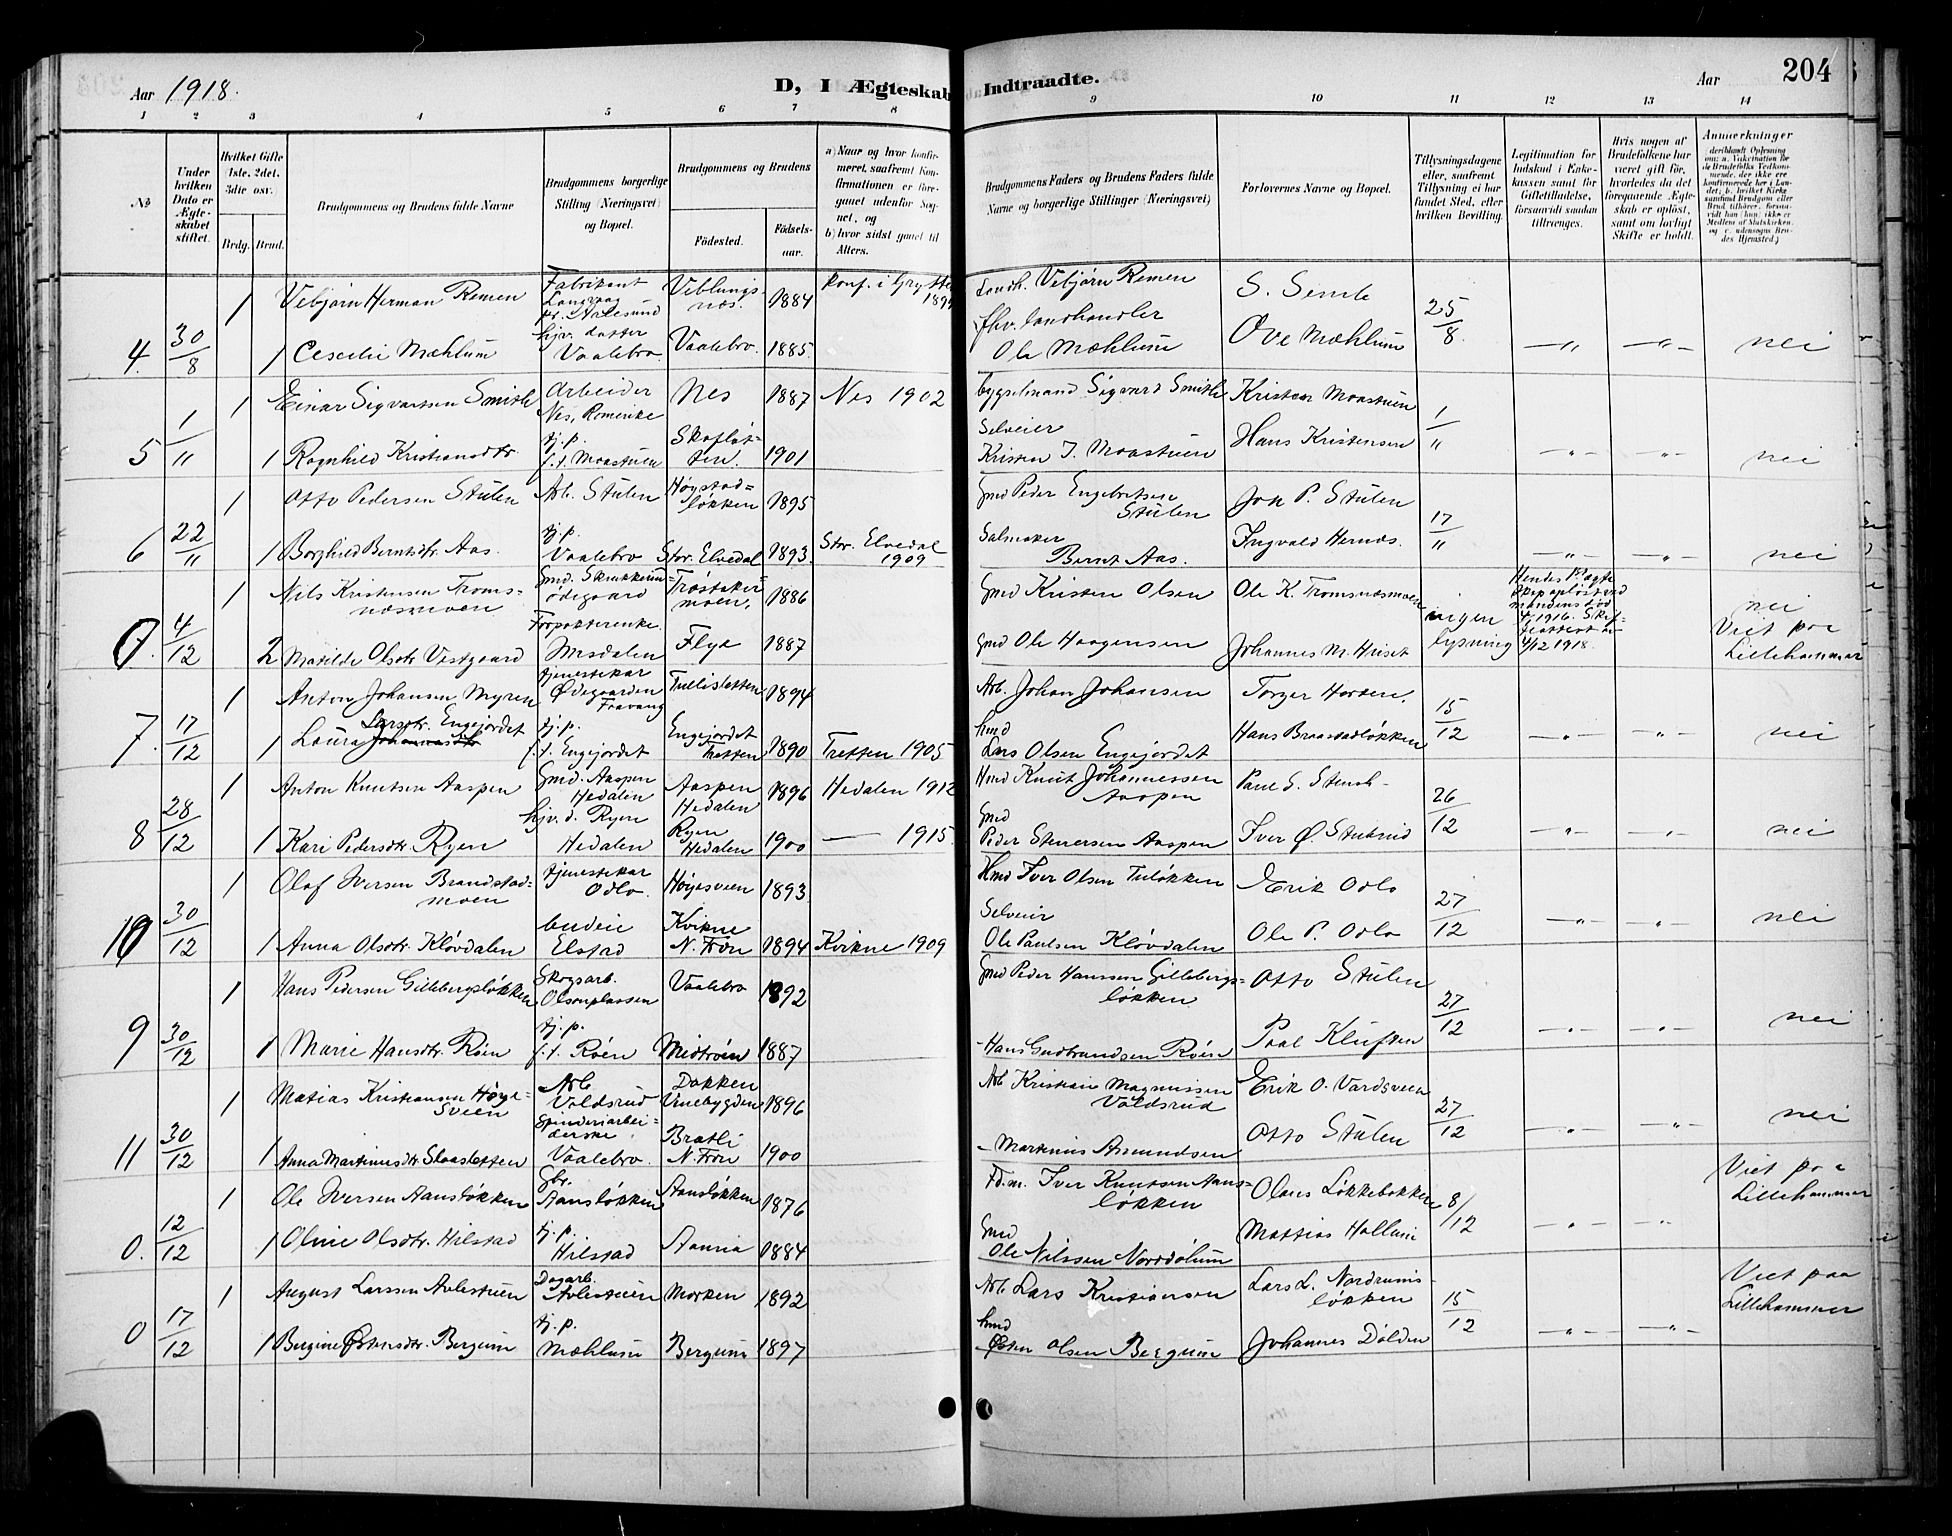 Aar 1918.
D, I Ægteskab Indtraadte.
Aar
204
1 2 3 4 5 6 7 8 9 10 11 12 13 14
№
Under hvilken Dato er Ægteskabet stiftet.
Hvilket Gifte (1ste, 2det, 3die osv.
Brdg. Brud.
Brudgommens og Brudens fulde Navne
Brudgommens borgerlige Stilling (Næringsvei) og Bopæl.
Brudgommens og Brudens
Fødested. Fødselsaar.
a) Naar og hvor konfirmeret, saafremt Konfirmationen er foregaaet udenfor Sognet, og
b) hvor sidst gaaet til Alters.
Brudgommens Faders og Brudens Faders fulde Navne og borgerlige Stillinger (Næringsvei)
Forlovernes Navne og Bopæl.
Tillysningsdagene eller, saafremt Tillysning ei har fundet Sted, efter hvilken Bevilling.
Legitimation for Indskud i Enkekassen samt for Giftetilladelse, forsaavidt saadan tiltrænges.
Hvis nogen af Brudefolkene har været gift før, hvorledes da det foregaaende Ægteskab er opløst, samt om lovligt Skifte er holdt.
Anmerkninger
1 Vebjørn Herman Remen Fabrikant Langvaag pr. Aalesund Veblungsnæs. 1884 konf. i Grytten Landh. Vebjørn Remen S. Semb 25/8
4. 30/8 1 Cecilie Mæhlum hjv. datter Vaalebro Vaalebro. 1885. fhv. landhandler Ole Mæhlum Ove Mæhlum —"— —"— nei
1 Einar Sigvartsen Smith Arbeider Nes, Romerike Nes 1887 Nes 1902 bygselmand Sigvart Smith Kristen Maastuen 1/11
5 1/11 1 Ragnhild Kristiansdtr. tj.p. f.t. Maastuen Skafløtten. 1901 Selveier Kristen J. Maastuen Hans Kristensen —"— —"— nei
1 Otto Pedersen Stulen Arb. Stulen Høystadløkken 1895 Gmd Peder Engebretsen Stulen Jon P. Stulen 17/11
6 22/11 1 Borghild Berntsdtr. Aas. tj.p. Vaalebro Stor. Elvedal 1893. Stor. Elvedal 1909 Salmaker Bernt Aas. Ingvald Hernes. —"— —"— nei
1 Nils Kristensen Tromsnæsmoen Gmd. Skrukkeruødegaard Trøstakermoen. 1886 Gmd Kristen Olsen Ole K. Tromsnæsmoen ingen lysning Hendes 1ste egteskap opløst ved mandens død 1916. Skifteattest av 4/12 1918. nei
0. 4/12 2 Matilde Olsdtr Vestgaard Forpakterenke. Imsdalen Flya 1887 Gmd Ole Haagensen Johannes M. Huset Viet paa Lillehammer
1 Anton Johansen Myren tjenestekar Ødegaarden Favang Tullisletten 1894 Arb. Johan Johansen Torger Horten. 15/12
7. 17/12 1 Laura Larsdtr. Engejordet tj.p. f.t. Engejordet Engejordet Tretten 1890 Tretten 1905 hmd Lars Olsen Engejordet Hans Braastadløkken —"— —"— nei
1 Anton Knutsen Aaspen Gmd. Aaspen Hedalen Aaspen Hedalen 1896 Hedalen 1912 Hmd Knut Johannessen Aaspen Paul S. 26/12
8 28/12 1 Kari Pedersdtr. Ryen hjv.d. Ryen Hedalen Ryen Hedalen 1900 — 1915. Gmd Peder Stenersen Aaspen Iver Ø. Stubrud —"— —"— nei
1 Olaf Iversen Brandstadmoen tjenestekar Odlo. Høyesveen 1893. Hmd Iver Olsen Tuløkken Erik Odlo 27/12
10 30/12 1 Anna Olsdtr. Kløvdalen budeie Elstad Kvikne N. Fron 1894 Kvikne 1909 Selveier Ole Paulsen Kløvdalen Ole P. Odlo —"— —"— nei
1 Hans Pedersen Gillebergsløkken Skogsarb. Olsonplassen Vaalebro 1892 Gmd Peder Hanssen Gillebergsløkken Otto Stulen 27/12
9 30/12 1 Marie Hansdtr. Røen tj.p. f.t. Røen Midtrøen 1887 - Hans Gudbrandsen Røen Paal Kluften —"— —"— nei
1 Matias Kristiansen Høyesveen Arb. Voldsrud Dokken Venebygden 1896 Arb Kristian Magnussen Voldsrud Erik O. Vardsveen 27/12
11 30/12 1 Anna Martinusdtr. Slaasletten Spinderiarbeiderske Vaalebro. Bratli N. Fron 1900 - Martinus Amundsen Otto Stulen —"— —"— nei
1 Ole Iversen Aansløkken Gbr. Aansløkken Aansløkken 1876 Fd.m. Iver Knutsen Aansløkken Olaus Løkkebakken 8/12 Viet paa Lillehammer
0. 12/12 1 Oline Olsdtr. Hilstad tj.p. Hilstad 1884 Gmd Ole Nilssen Norddølum Mattias Hallum —"— —"—
1 August Larssen Avlestuen Dagarb. Avlestuen Morken 1892 Arb. Lars Kristiansen Lars L. Nordrumsløkken 15/12 Viet paa Lillehammer
0 17/12 1 Bergine Østensdtr. Bergum tj.p. Mæhlum Bergum 1897 hmd Østen Olsen Bergum Johannes Dalden —"— —"—